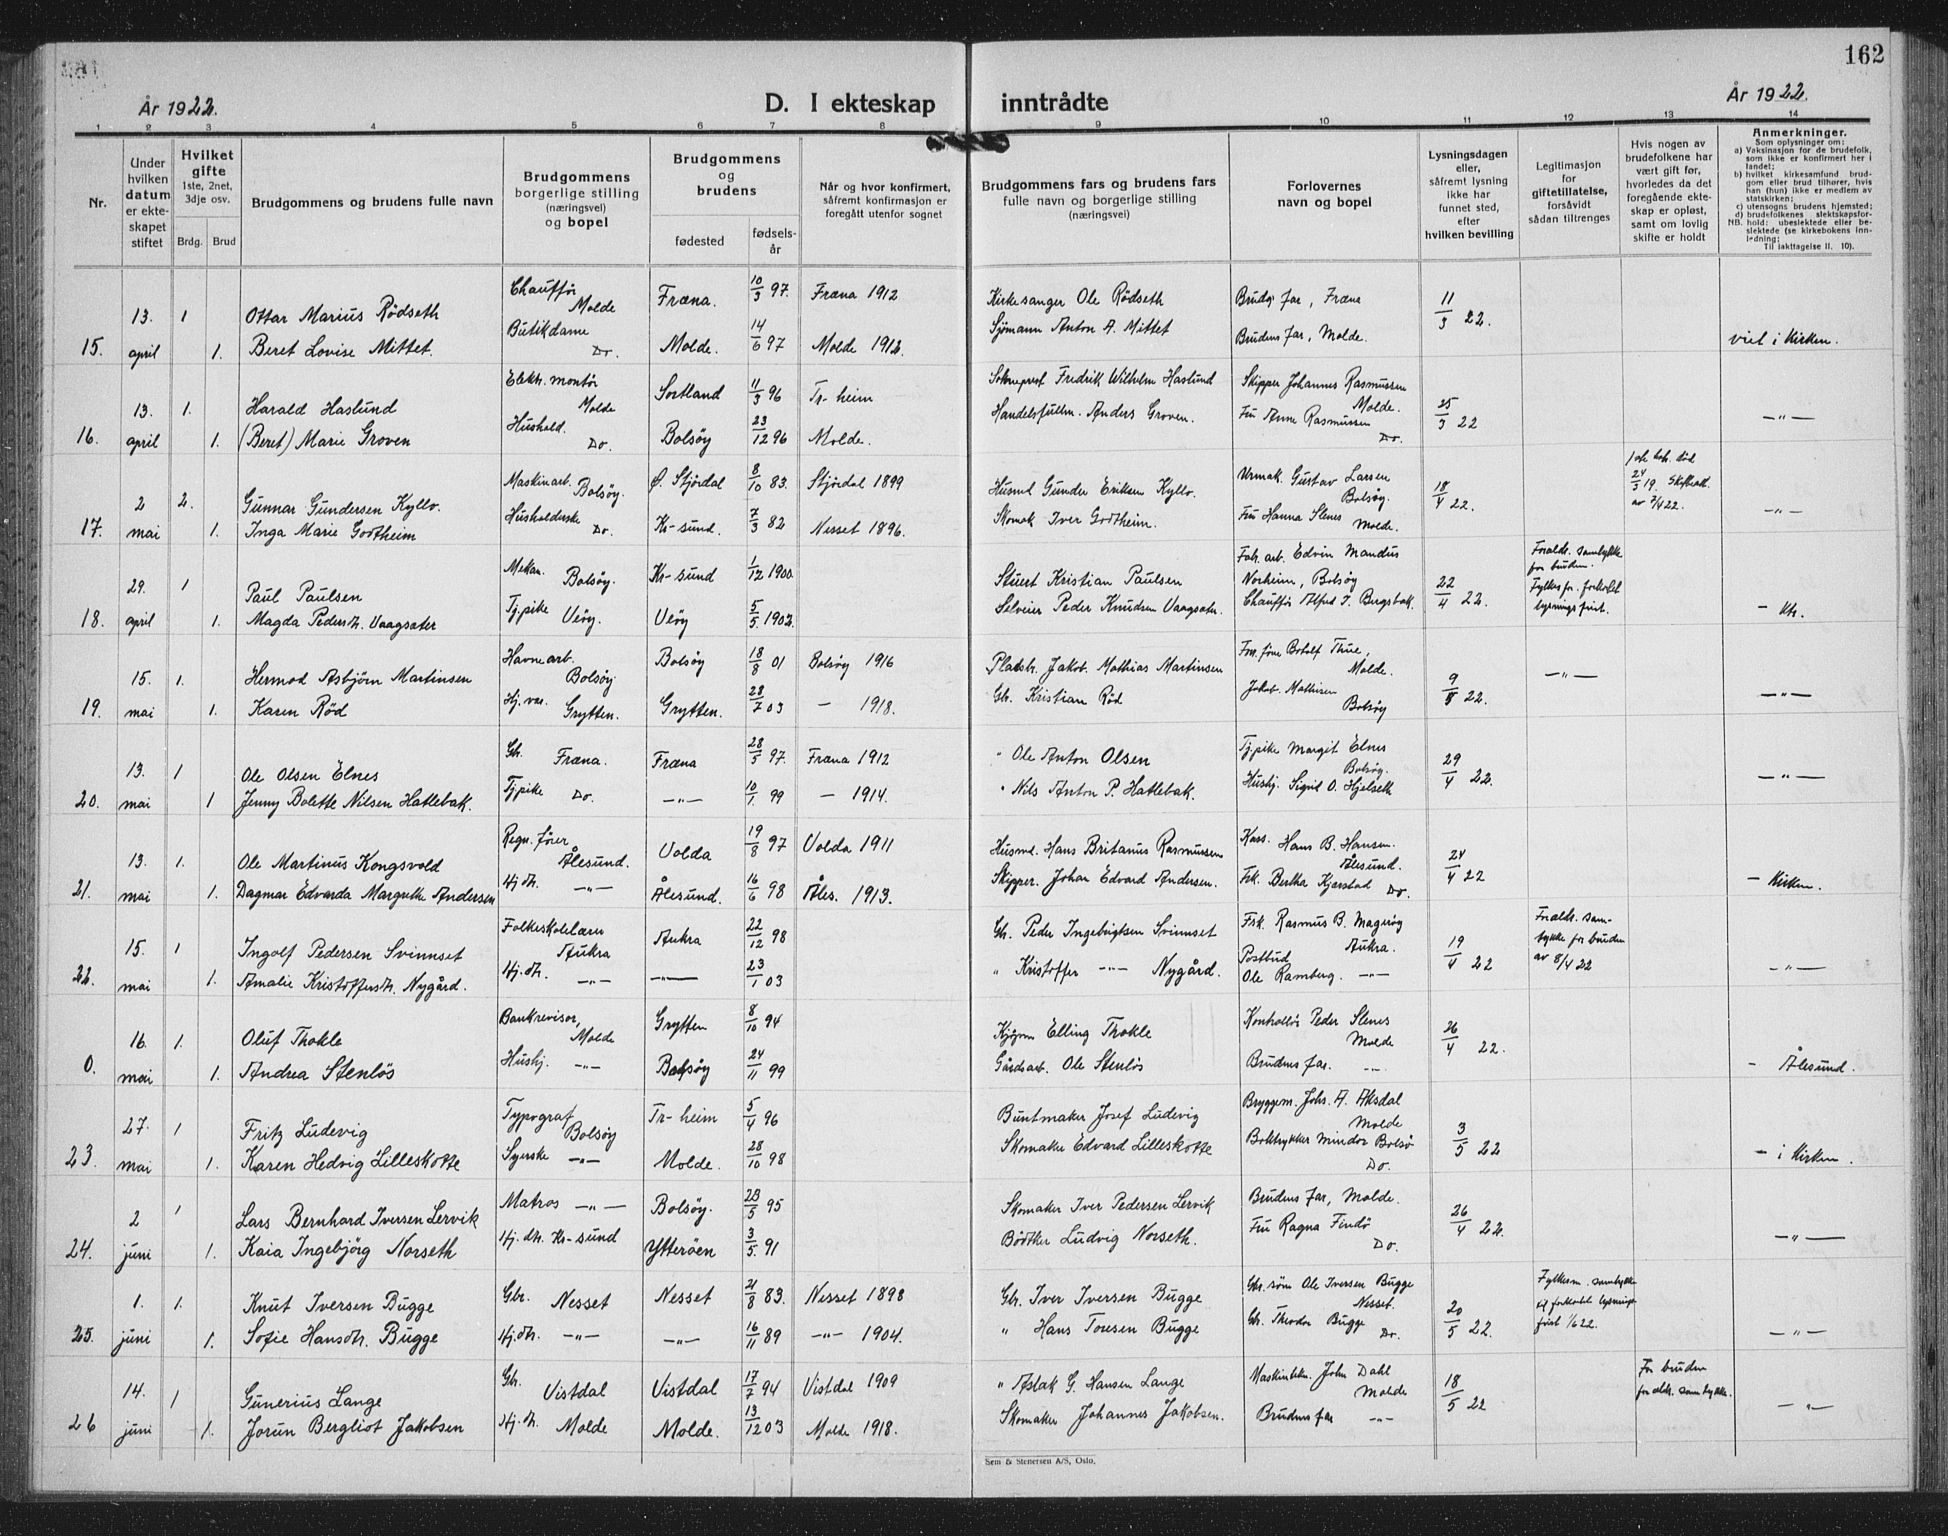 162
År 1922.
D. I ekteskap inntrådte
År 1922.
1 2 3 4 5 6 7 8 9 10 11 12 13 14
Nr.
Under hvilken datum er ekteskapet stiftet
Hvilket gifte 1ste, 2net, 3dje osv.
Brdg. Brud
Brudgommens og brudens fulle navn
Brudgommens borgerlige stilling (næringsvei) og bopel
Brudgommens og brudens
fødested
fødsels-år
Når og hvor konfirmert, såfremt konfirmasjon er foregått utenfor sognet
Brudgommens fars og brudens fars fulle navn og borgerlige stilling (næringsvei)
Forlovernes navn og bopel
Lysningsdagen eller, såfremt lysning ikke har funnet sted, efter hvilken bevilling
Legitimasjon for giftetillatelse, forsåvidt sådan tiltrenges
Hvis nogen av brudefolkene har vært gift før, hvorledes da det foregående ekteskap er opløst, samt om lovlig skifte er holdt
Anmerkninger.
Som oplysning om:
a) Vaksinasjon for de brudefolk, som ikke er konfirmert her i landet;
b) hvilket kirkesamfund brudgom eller brud tilhører, hvis han (hun) ikke er medlem av statskirken;
c) utensogns brudens hjemsted;
d) brudefolkenes slektskapsforhold: ubeslektede eller beslektede (se kirkebokens innledning;
NB. Til iakttagelse II. 10).
13. 1 Ottar Marius Rödseth Chaufför Molde Fræna. 10/3 97. Fræna 1912 Kirkesanger Ole Rödseth Brudg. far, Fræna 11/3 22.
15. april 1. Beret Lovise Mittet. Butikdame Do. Molde. 14/6 97 Molde 1912. Sjömann Anton A. Mittet Brudens far, Molde. viet i Kirken.
13. 1. Harald Haslund Elektr. montör Molde Sortland 11/3 96 Tr-heim Sokneprest Fredrik Wilhelm Haslund Skipper Johannes Rasmussen Molde. 25/3 22
16. april 1. (Beret) Marie Groven Hushold. Do. Bolsöy 23/12 96 Molde. Handelsfullm. Anders Groven. Fru Anne Rasmussen Do. —"—
2 2. Gunnar Gundersen Kyllo. Maskinarb. Bolsöy. Ö. Stjördal 8/10 83. Stjördal 1899 Husmd Gunder Eriksen Kyllo. Urmak. Gustav Larsen Bolsöy. 18/4 22. død 24/3 19. av 7/4 22.
17. mai 1. Inga Marie Godtheim Husholderske Do. Kr-sund. 7/3 82 Nesset 1896. Skomak Iver Godtheim. Fru Hanna Slenes Molde. —"—
29. 1 Paul Paulsen Mekan. Bolsöy. Kr-sund 1/12 1900. Stuert Kristian Paulsen Fabr. arb. Edvin Mandus Norheim, Bolsöy 22/4 22. Foreldr. samtykke for bruden.
18. april 1. Magda Pedersdtr. Vaagsæter Tj.pike Veöy. Veöy 5/5 1902. Selveier Peder Knudsen Vaagsæter. Chaufför Alfred I. Bergsbak. Fylkesf. forkortet lysningsfrist. – Kh.
15. 1. Hermod Asbjörn Martinsen Havnearb. Bolsöy Bolsöy 18/8 01 Bolsöy 1916 Jakob Mathias Martinsen Botolf Thue, Molde. 9/5 22. —"—
19. mai 1. Karen Röd Hj. vær. Grytten. Grytten. 28/7 03 – 1918. Gbr. Kristian Röd Jakob Mathisen Bolsöy —"—
13. 1 Ole Olsen Elnes Gbr. Fræna. Fræna 28/5 97. Fræna 1912 " Ole Anton Olsen Tj.pike Margit Elnes Bolsöy. 29/4 22.
20. mai 1 Jenny Bolette Nilsen Hatlebak. Tj.pike Do. —"— 10/1. 99 – 1914. " Nils Anton P. Hatlebak. Hushj. Sigrid O. Hjelseth —"—
13. 1. Ole Martinus Kongsvold Regn. förer Ålesund. Volda 19/8 97 Volda 1911 Husmd. Hans Britanus Rasmussen Kass. Hans B. Hansen. Ålesund. 24/4 22
21. mai 1. Dagmar Edvarda Margrethe Andersen Hj. dtr. —"— Ålesund. 16/6 98 Åles. 1913. Skipper. Johan Edvard Andersen. Frk. Bertha Kjerstad Do. – Kirken.
15. 1 Ingolf Pedersen Svinnset Folkeskolelærer Aukra Aukra 22/12 98 Gbr. Peder Ingebrigtsen Svinnset Fsk. Rasmus B. Mageröy Aukra. 19/4 22 Foreldr. samtykke for bruden av 8/4 22
22. mai 1. Amalie Kristoffersdtr. Nygård. Hj. dtr. —"— —"— 23/1 03 " Kristoffer —"— Nygård. Postbud Ole Ramberg. —"— —"—
16. 1. Oluf Thokle Bankrevisor, Molde Grytten 8/10 94 Kjöpm Elling Thokle Kontrollör Peder Slenes Molde 26/4 22.
0. mai 1. Andrea Stenlös Hushj. —"— Bolsöy 24/11 99 Gårdsarb. Ole Stenlös Brudens far. —"— – Ålesund.
27. 1 Fritz Ludevig Typograf Bolsöy Tr-heim 5/4 96 Buntmaker Josef Ludevig Bryggem. Johs. A. Aksdal Molde 3/5 22
23. mai 1. Karen Hedvig Lilleskotte Syerske —"— Molde. 28/10 98 Skomaker Edvard Lilleskotte Boktrykker Mindor Bolsö Do. – i Kirken.
2 1 Lars Bernhard Iversen Lervik Matros —"— Bolsöy. 23/5 95 Skomaker Iver Pedersen Lervik Brudens far, Molde. 26/4 22.
24. juni 1. Kaia Ingebjörg Norseth Hj. dtr. Kr-sund Ytteröen 3/5. 91 Bödtker Ludvig Norseth. Fru Ragna Findö Do. —"—
1. 1. Knut Iversen Bugge Gbr. Nesset Nesset 21/8 83. Nesset 1898 Gbr. Iver Iversen Bugge Gbr. søn Ole Iversen Bugge Nesset. 20/5 22. Fylkesm. samtykke forkortet lysnings frist 1/6 22.
25. juni 1. Sofie Hansdtr. Bugge Hj. dtr. —"— —"— 16/11 89 —"— 1904. " Hans Toresen Bugge Gbr. Theodor Bugge Do. —"—
14. 1 Gunerius Lange Gbr. Vistdal Vistdal 17/7 94 Vistdal 1909 " Aslak G. Hansen Lange John Dahl Molde 18/5 22 For bruden foreldr. samtykke.
26 juni 1. Jorun Bergliot Jakobsen Hj. dtr. Molde Molde. 13/12 03 Molde 1918. Skomaker Johannes Jakobsen. Brudens far —"— —"—
Sem & Stenersen A/S, Oslo.